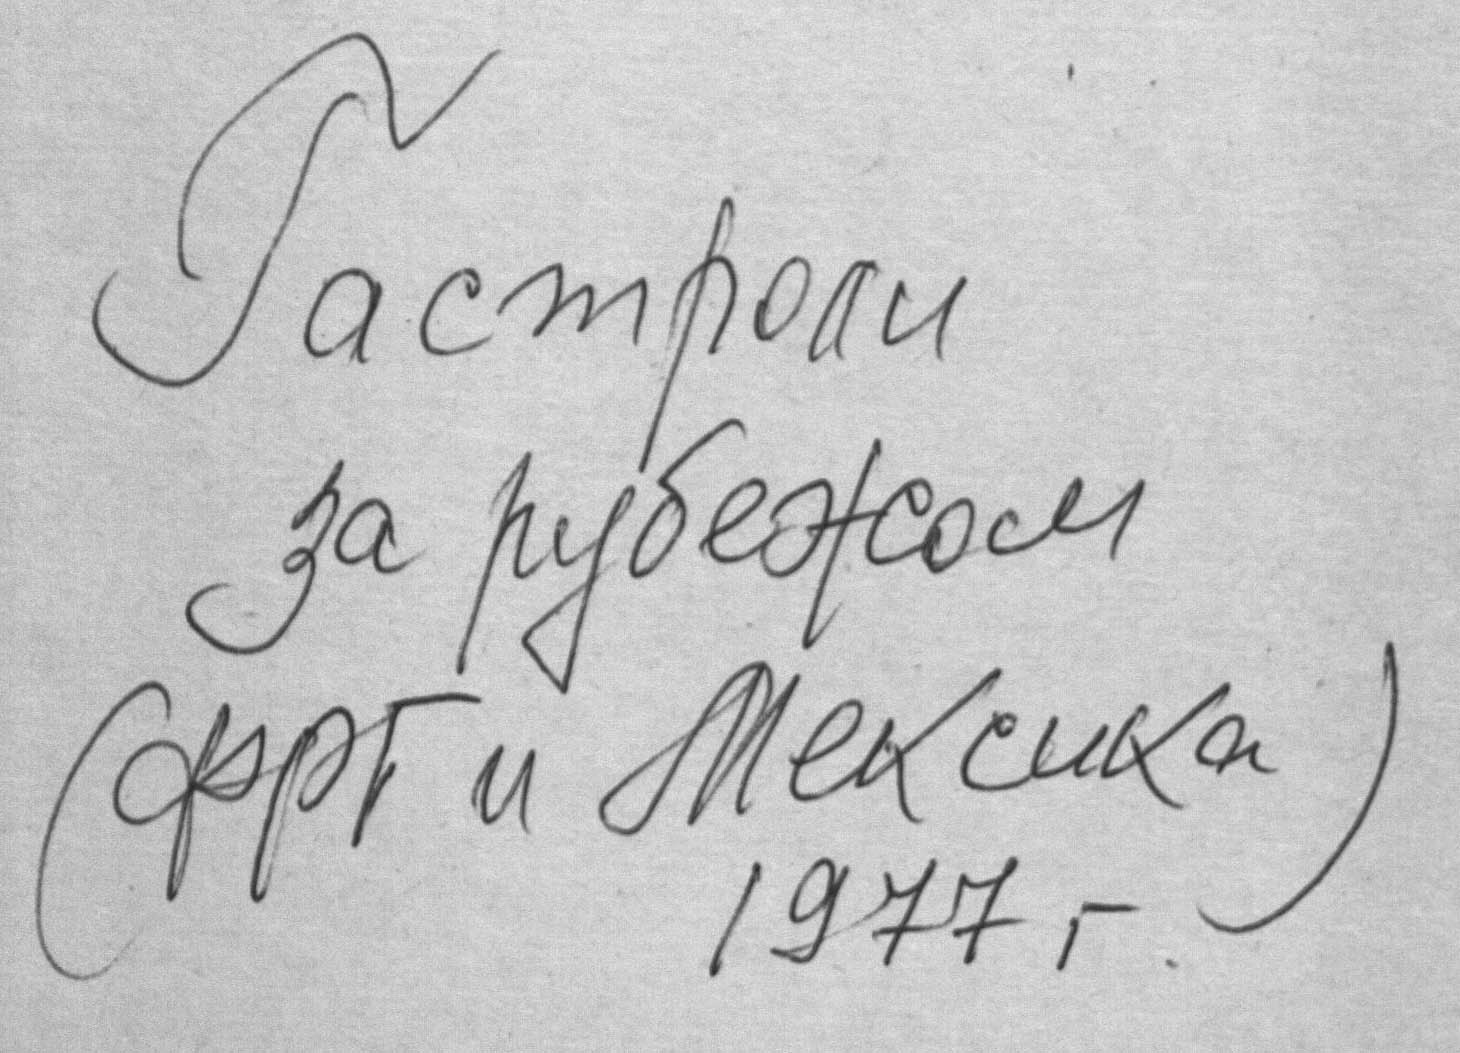 Гастроли
за рубежом
(ФРГ и Мексика)
1977 г.